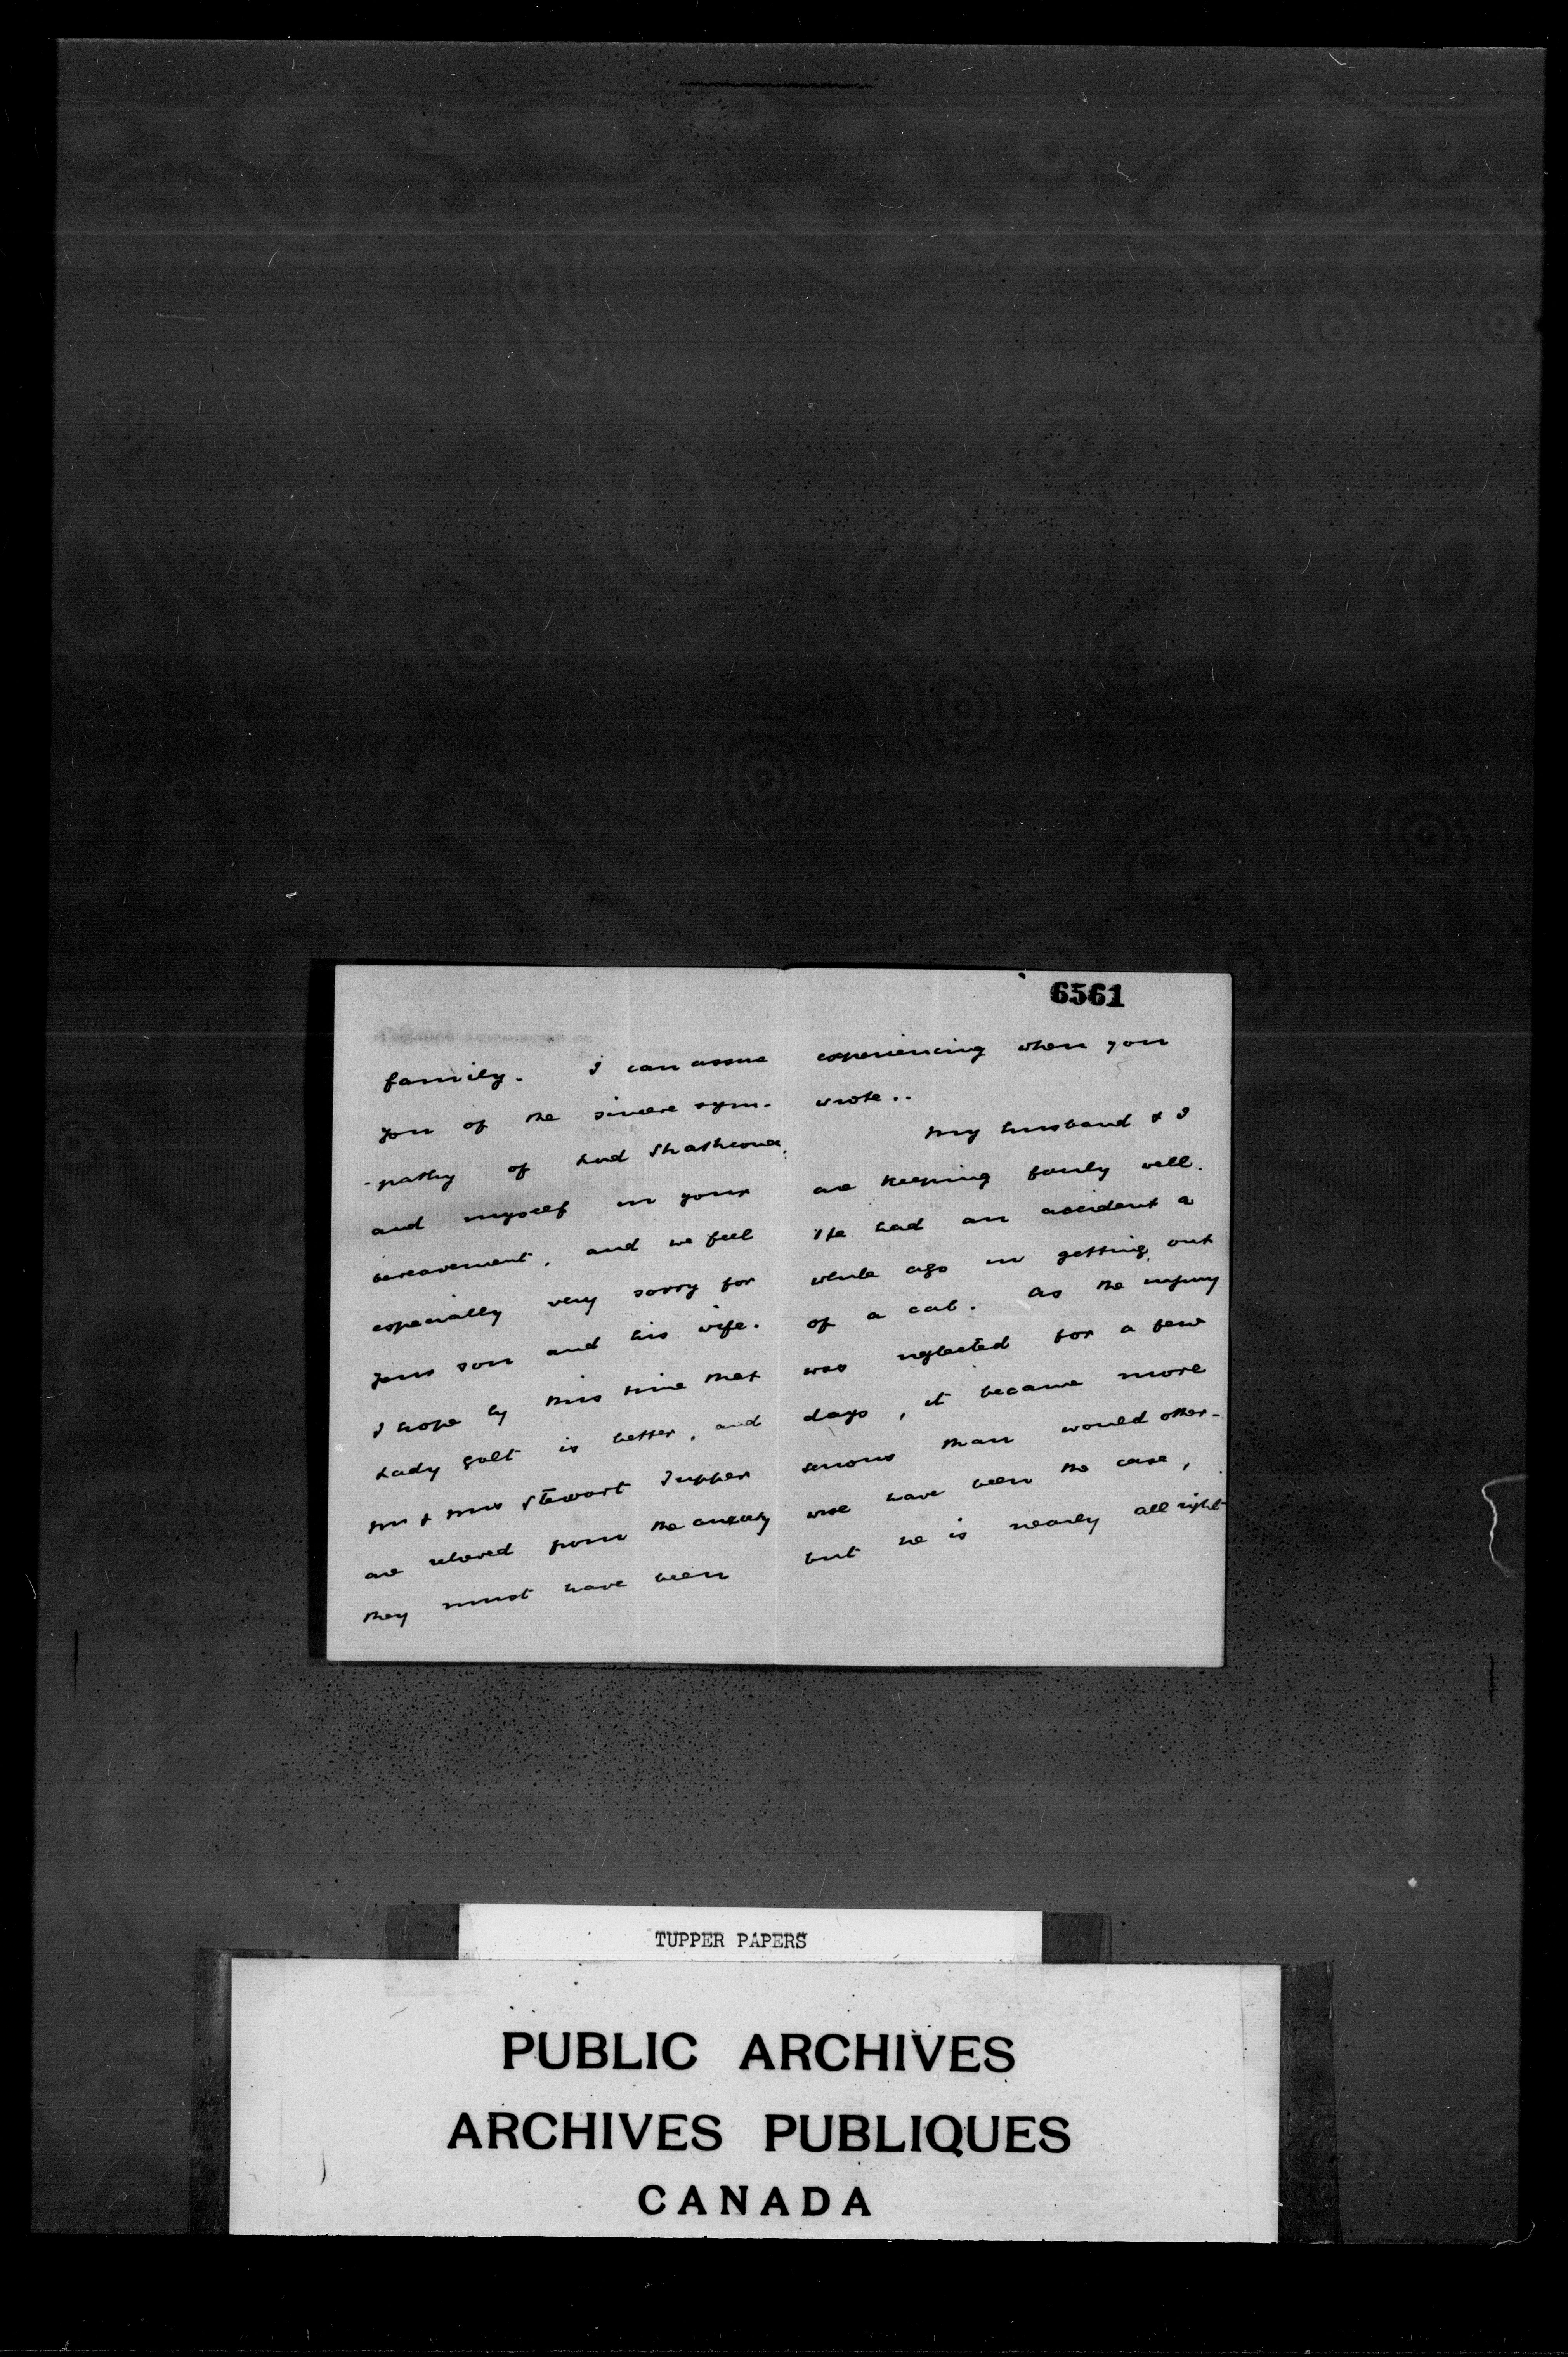 6561
family. I can assure
you of the sincere sym-
-pathy of Lord Strathcona,
and myself in your
bereavement, and we feel
especially very sorry for
your son and his wife.
I hope by this time that
Lady Galt is better, and
Mr & Mrs Stewart Tupper
are relieved from the anxiety
they must have been
experiencing when you
wrote..
My husband & I
are keeping fairly well.
He had an accident a
while ago in getting out
of a cab. As the injury
was neglected for a few
days, it became more
serious than would other-
wise have been the case,
but he is nearly all right
TUPPER PAPERS
PUBLIC ARCHIVES
ARCHIVES PUBLIQUES
CANADA